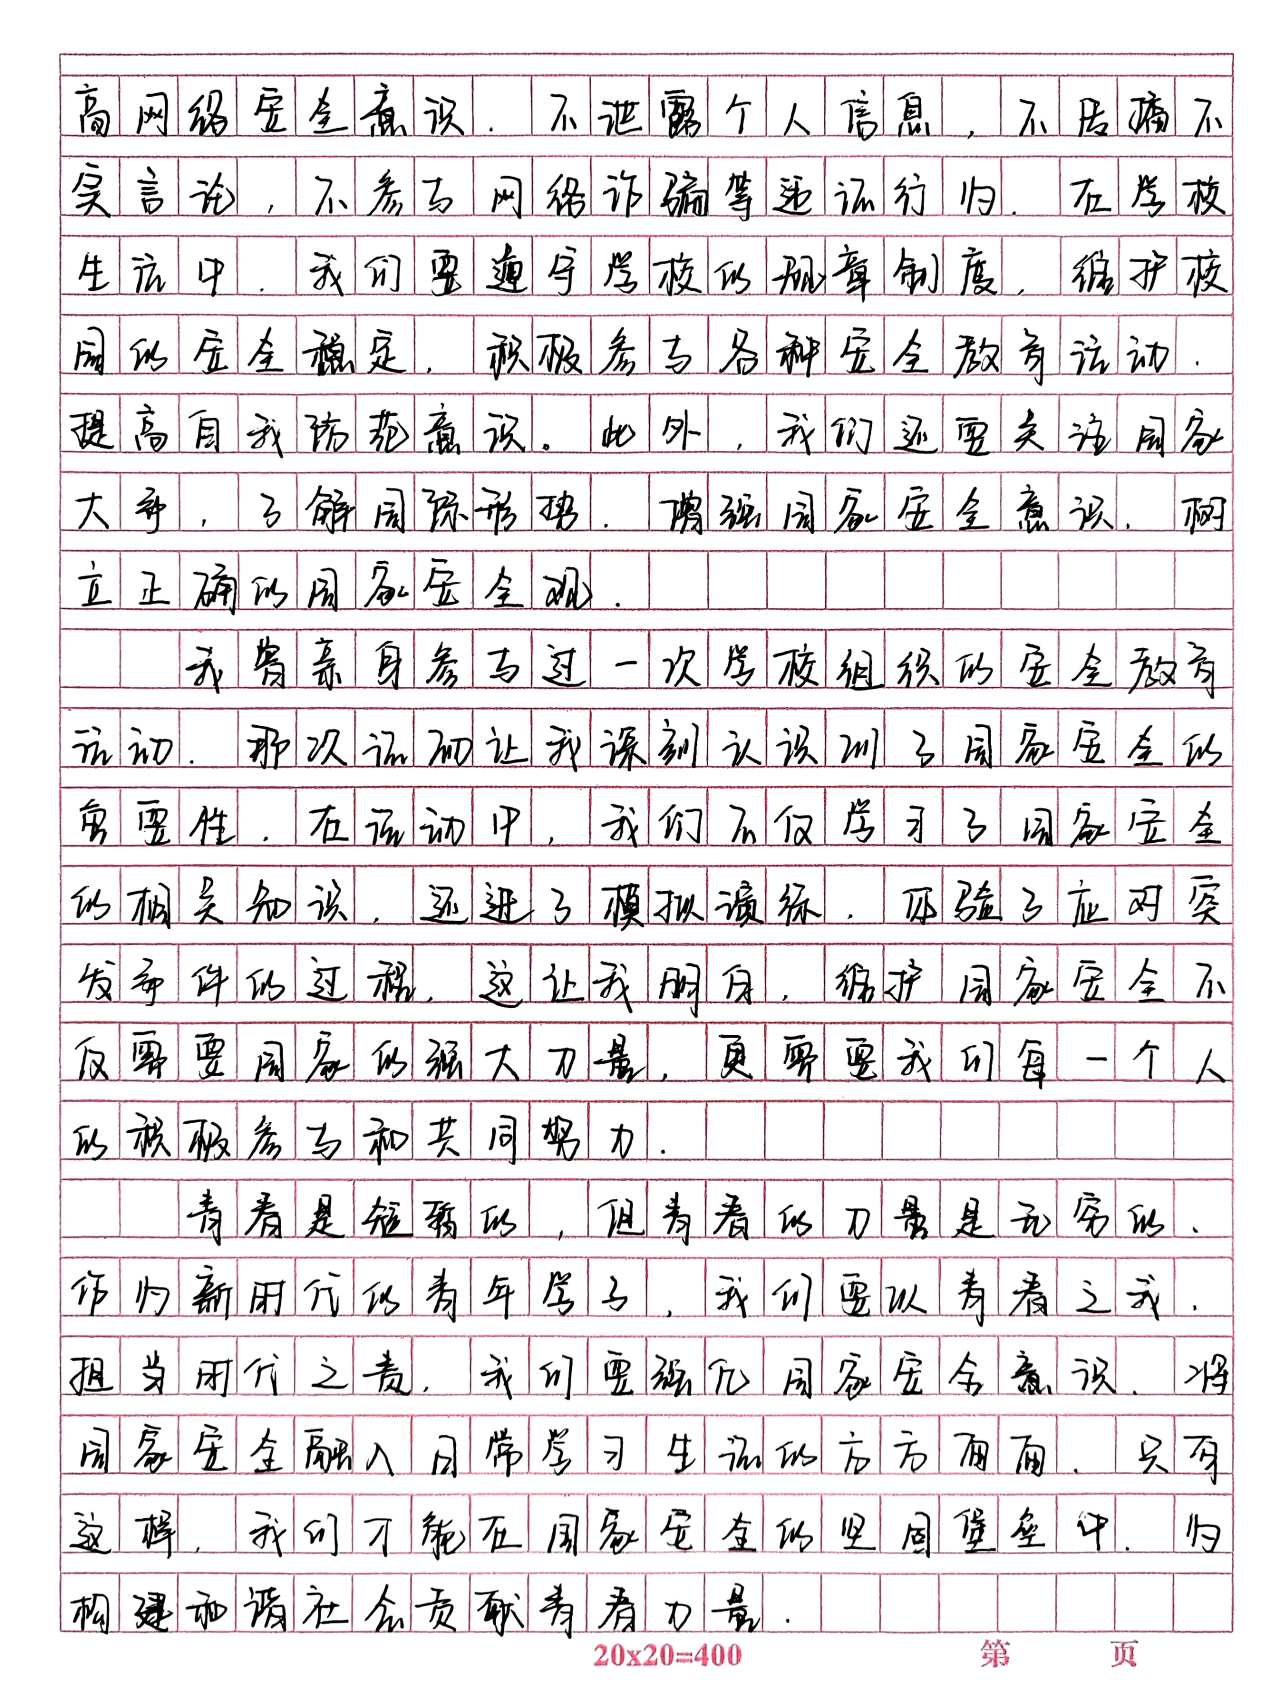 高网络安全意识.不泄露个人信息,不传播不
实言论,不参与网络诈骗等违法行为.在学校
生活中.我们要遵守学校的规章制度.维护校
园的安全稳定.积极参与各种安全教育活动.
提高自我防范意识。此外,我们还要关注国家
大事,了解国际形势.增强国家安全意识.树
立正确的国家安全观.
我曾亲身参与过一次学校组织的安全教育
活动.那次活动让我深刻认识到了国家安全的
重要性.在活动中,我们不仅学习了国家安全
的相关知识.还进了模拟演练.体验了应对突
发事件的过程.这让我明白.维护国家安全不
仅需要国家的强大力量,更需要我们每一个人
的积极参与和共同努力.
青春是短暂的,但青春的力量是无穷的.
作为新时代的青年学子,我们要以青春之我.
担当时代之责.我们要强化国家安全意识.将
国家安全融入日常学习生活的方方面面.只有
这样,我们才能在国家安全的坚固堡垒中.为
构建和谐社会贡献青春力量.
20x20=400 第 页